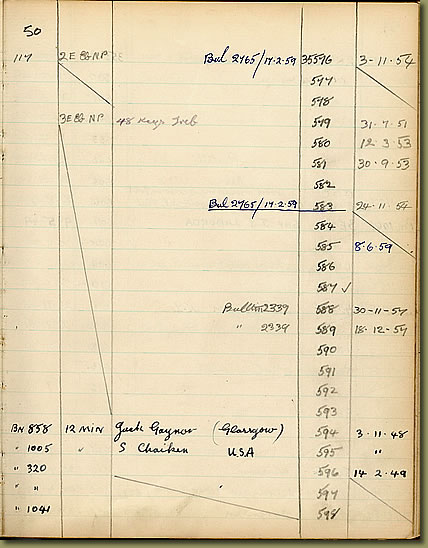 50
117 2E EG NP Bul 2765/17.2.59 35576 3-11-54
577
578
3E EG NP 48 Keys Treb 579 31.7.51
580 12.3.53
581 30.9.53
582
Bul 2765/17.2.59 583 24-11-54
584
585 8.6.59
586
587 ✓
2339 588 30-11-54
" 2339 589 18-12-54
590
591
592
593
BN 858 12 MIN Jack Gaynor (Glasrgow) 594 3-11-48
" 1005 " S Chaiken USA 595 "
" 320 596 14 2.49
" " " 597
" 1041 598